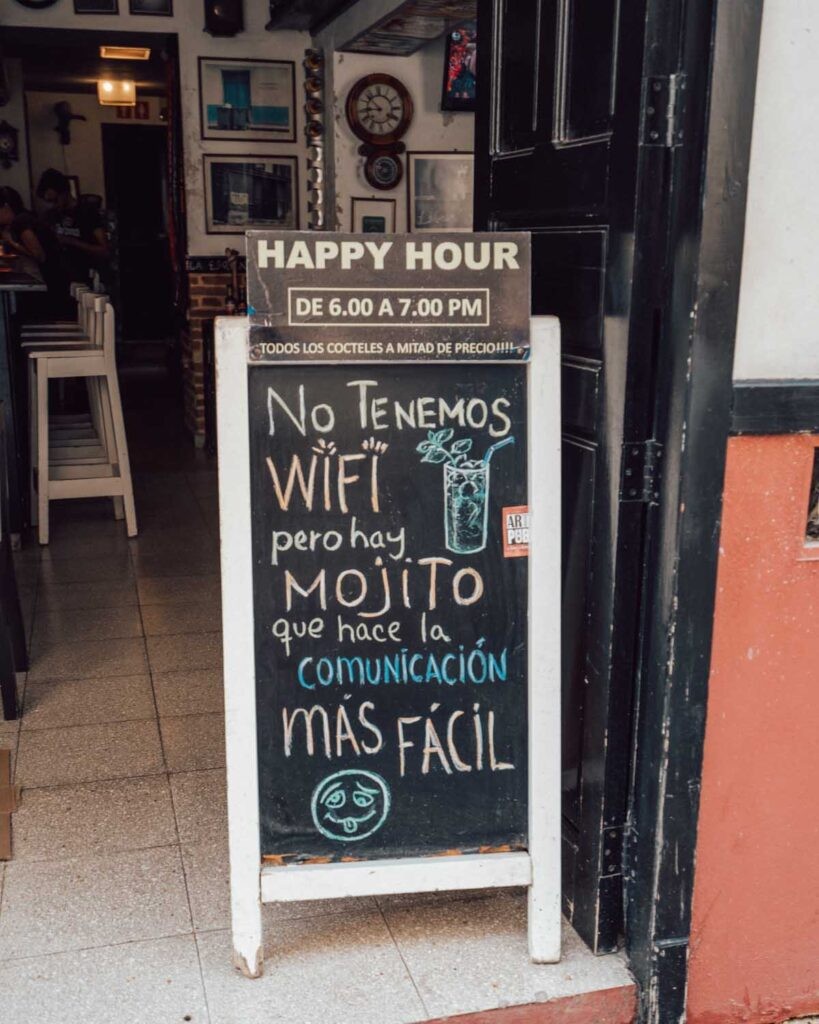 HAPPY HOUR
DE 6.00 A 7.00 PM
TODOS LOS COCTELES A MITAD DE PRECIO!!!!
No TENEMOS
WIFI
pero hay
MOJITO
que hace la
COMUNICACIÓN
MÁS FÁCIL